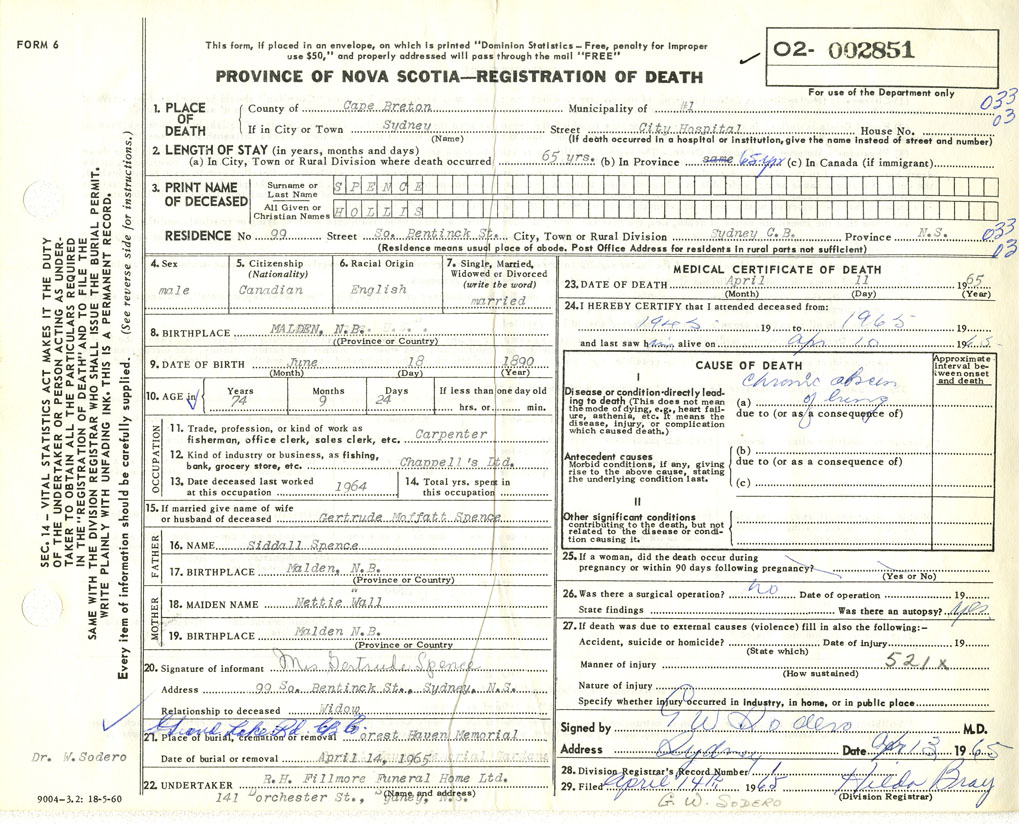 FORM 6
This form, if placed in an envelope, on which is printed "Dominion Statistics – Free, penalty for improper
use $50," and properly addressed will pass through the mail "FREE"
PROVINCE OF NOVA SCOTIA—REGISTRATION OF DEATH
02- 002851
For use of the Department only
033
03
1. PLACE OF DEATH
County of Cape Breton Municipality of #1
If in City or Town Sydney Street City Hospital House No.
(Name) (If death occurred in a hospital or institution, give the name instead of street and number)
2. LENGTH OF STAY (in years, months and days)
(a) In City, Town or Rural Division where death occurred 65 yrs. (b) In Province same 65 yr (c) In Canada (if immigrant)
3. PRINT NAME OF DECEASED
Surname or Last Name SPENCE
All Given or Christian Names HOLLIS
RESIDENCE No 99 Street So. Bentinck St. City, Town or Rural Division Sydney C.B. Province N.S.
033
03
(Residence means usual place of abode. Post Office Address for residents in rural parts not sufficient)
4. Sex
male
5. Citizenship
(Nationality)
Canadian
6. Racial Origin
English
7. Single, Married,
Widowed or Divorced
(write the word)
married
8. BIRTHPLACE MALDEN, N.B.
(Province or Country)
9. DATE OF BIRTH June 18 1890
(Month) (Day) (Year)
10. AGE in Years Months Days If less than one day old
74 9 24 hrs. or min.
OCCUPATION
11. Trade, profession, or kind of work as
fisherman, office clerk, sales clerk, etc. Carpenter
12. Kind of industry or business, as fishing,
bank, grocery store, etc. Chappell's Ltd.
13. Date deceased last worked
at this occupation 1964
14. Total yrs. spent in
this occupation
15. If married give name of wife
or husband of deceased Gertrude Moffatt Spence
FATHER
16. NAME Siddall Spence
17. BIRTHPLACE Malden, N.B.
(Province or Country)
MOTHER
18. MAIDEN NAME Nettie Wall
19. BIRTHPLACE Malden N.B.
(Province or Country)
20. Signature of informant Mrs Gertrude Spence
Address 99 So. Bentinck St., Sydney, N.S.
Relationship to deceased Widow
Grand Lake Rd. C.B. Co.
21. Place of burial, cremation or removal Forest Haven Memorial
Date of burial or removal April 14, 1965 Memorial Gardens
22. UNDERTAKER R.H. Fillmore Funeral Home Ltd.
(Name and address)
141 Dorchester St., Sydney, N.S.
MEDICAL CERTIFICATE OF DEATH
23. DATE OF DEATH April 11 1965
(Month) (Day) (Year)
24. I HEREBY CERTIFY that I attended deceased from:
1945 19 to 1965 19
and last saw him alive on Apr 10 1965
CAUSE OF DEATH
Approximate
interval be-
tween onset
and death
I
Disease or condition directly lead-
ing to death (This does not mean
the mode of dying, e.g., heart fail-
ure, asthenia, etc. It means the
disease, injury, or complication
which caused death.)
(a) Chronic abscess
of lung
due to (or as a consequence of)
Antecedent causes
Morbid conditions, if any, giving
rise to the above cause, stating
the underlying condition last.
(b)
due to (or as a consequence of)
(c)
II
Other significant conditions
contributing to the death, but not
related to the disease or condi-
tion causing it.
25. If a woman, did the death occur during
pregnancy or within 90 days following pregnancy?
(Yes or No)
26. Was there a surgical operation? no Date of operation 19
State findings Was there an autopsy? Yes
27. If death was due to external causes (violence) fill in also the following:–
Accident, suicide or homicide? Date of injury 19
(State which)
Manner of injury 521 x
(How sustained)
Nature of injury
Specify whether injury occurred in industry, in home, or in public place
Signed by G W Sodero M.D.
Address Sydney Date Apr 13 1965
28. Division Registrar's Record Number 1
29. Filed April 14th 1965 Hilda Bray
(Division Registrar)
G. W. SODERO
SEC. 14 – VITAL STATISTICS ACT MAKES IT THE DUTY
OF THE UNDERTAKER OR PERSON ACTING AS UNDER-
TAKER TO OBTAIN ALL THE PARTICULARS REQUIRED
IN THE "REGISTRATION OF DEATH" AND TO FILE THE
SAME WITH THE DIVISION REGISTRAR WHO SHALL ISSUE THE BURIAL PERMIT.
WRITE PLAINLY WITH UNFADING INK. THIS IS A PERMANENT RECORD.
Every item of information should be carefully supplied. (See reverse side for instructions.)
Dr. W. Sodero
9004-3.2: 18-5-60